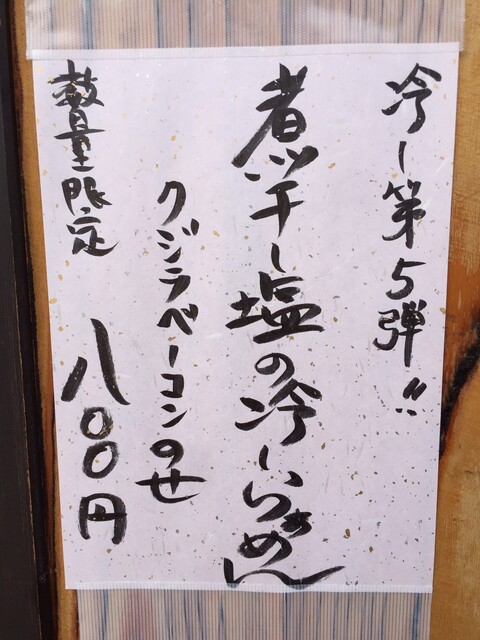 冷し第5弾!!
煮干し塩の冷しらぁめん
クジラベーコンのせ
数量限定
八〇〇円